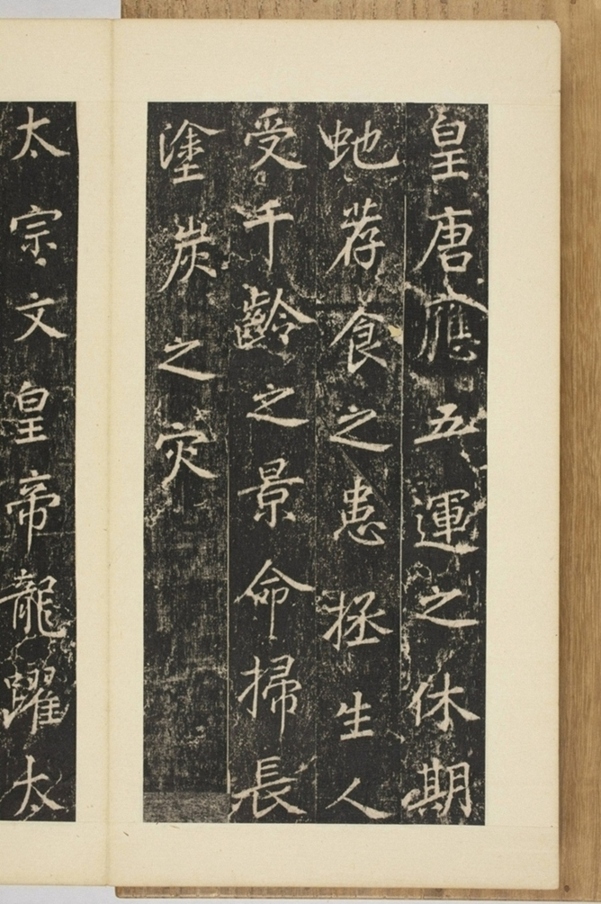 皇唐應五運之休期
虵荐食之患拯生人
受千齡之景命掃長
塗炭之灾
太宗文皇帝龍躍太